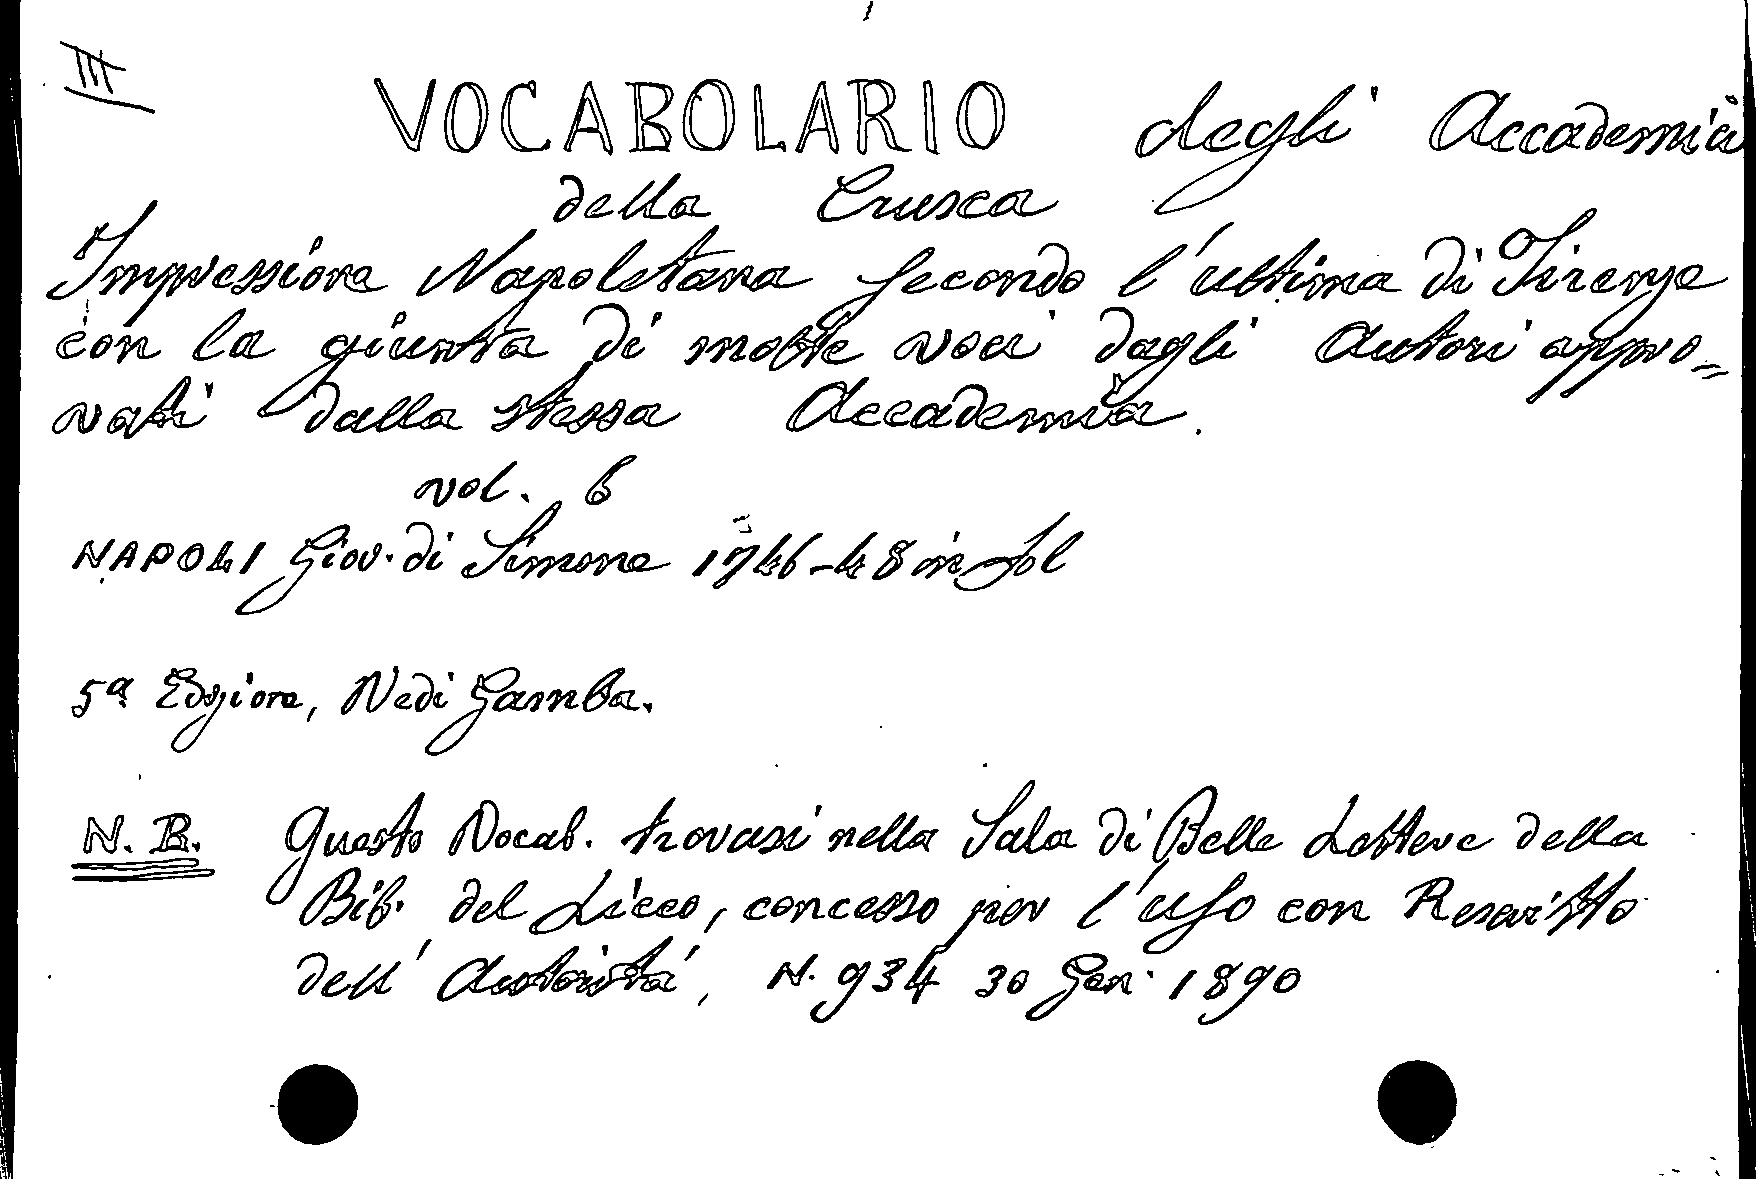 III
VOCABOLARIO degli Accademici
della Crusca
Impressione Napoletana secondo l'ultima di Firenze
con la giunta di molte voci dagli Autori appro=
vati dalla stessa Accademia.
vol. 6
NAPOLI Giov. di Simone 1746-48 in fol
5ª Edizione, Vedi Gamba.
N. B. Questo Vocab. trovasi nella Sala di Belle Lettere della
Bib. del Liceo, concesso per l'uso con Rescritto
dell'Autorità, N. 934 30 Gen. 1890